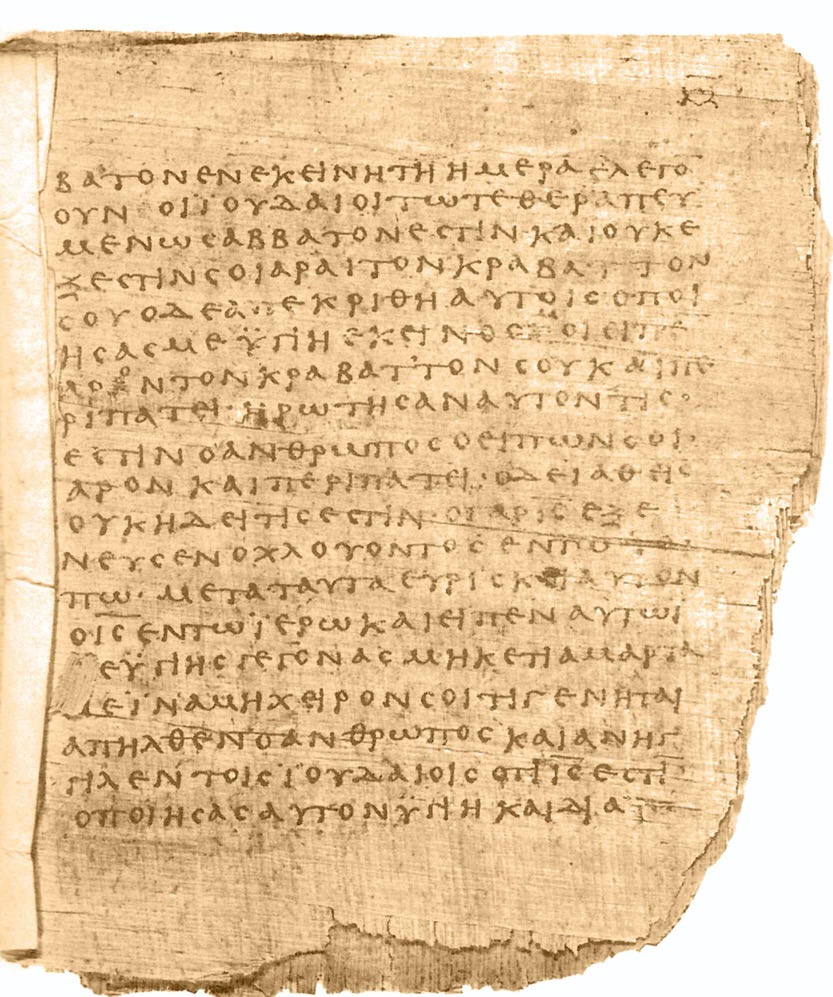 ΒΑΤΟΝΕΝΕΚΕΙΝΗΤΗΗΜΕΡΑΕΛΕΓΟ
ΟΥΝΟΙΪΟΥΔΑΙΟΙΤΩΤΕΘΕΡΑΠΕΥ
ΜΕΝΩϹΑΒΒΑΤΟΝΕϹΤΙΝ·ΚΑΙΟΥΚΕ
ΞΕϹΤΙΝϹΟΙΑΡΑΙΤΟΝΚΡΑΒΑΤΤΟΝ
ϹΟΥΟΔΕΑΠΕΚΡΙΘΗΑΥΤΟΙϹΟΠΟΙ
ΗϹΑϹΜΕΫΓΙΗΕΚΕΙΝΟϹΜΟΙΕΙΠΕ
ΑΡΟΝΤΟΝΚΡΑΒΑΤ'ΤΟΝϹΟΥΚΑΙΠΕ
ΡΙΠΑΤΕΙ·ΗΡΩΤΗϹΑΝΑΥΤΟΝΤΙϹ·
ΕϹΤΙΝΟΑΝΘΡΩΠΟϹΟΕΙΠΩΝϹΟΙ·
ΑΡΟΝΚΑΙΠΕΡΙΠΑΤΕΙ·ΟΔΕΙΑΘΕΙϹ
ΟΥΚΗΔΕΙΤΙϹΕϹΤΙΝ·ΟΓΑΡΙϹΕΞΕ
ΝΕΥϹΕΝΟΧΛΟΥΟΝΤΟϹΕΝΤΩΤΟ
ΠΩ·ΜΕΤΑΤΑΥΤΑΕΥΡΙϹΚΕΙΑΥΤΟΝ
ΟΙϹΕΝΤΩΪΕΡΩΚΑΙΕΙΠΕΝΑΥΤΩΙ
ΕΫΓΙΗϹΓΕΓΟΝΑϹΜΗΚΕΤΙΑΜΑΡΤΑ
ΝΕΪΝΑΜΗΧΕΙΡΟΝϹΟΙΤΙΓΕΝΗΤΑΙ
ΑΠΗΛΘΕΝΟΑΝΘΡΩΠΟϹΚΑΙΑΝΗΓ
ΓΙΛΕΝΤΟΙϹΪΟΥΔΑΙΟΙϹΟΤΙΙϹΕϹΤΙ
ΟΠΟΙΗϹΑϹΑΥΤΟΝΫΓΙΗΚΑΙΔΙΑ